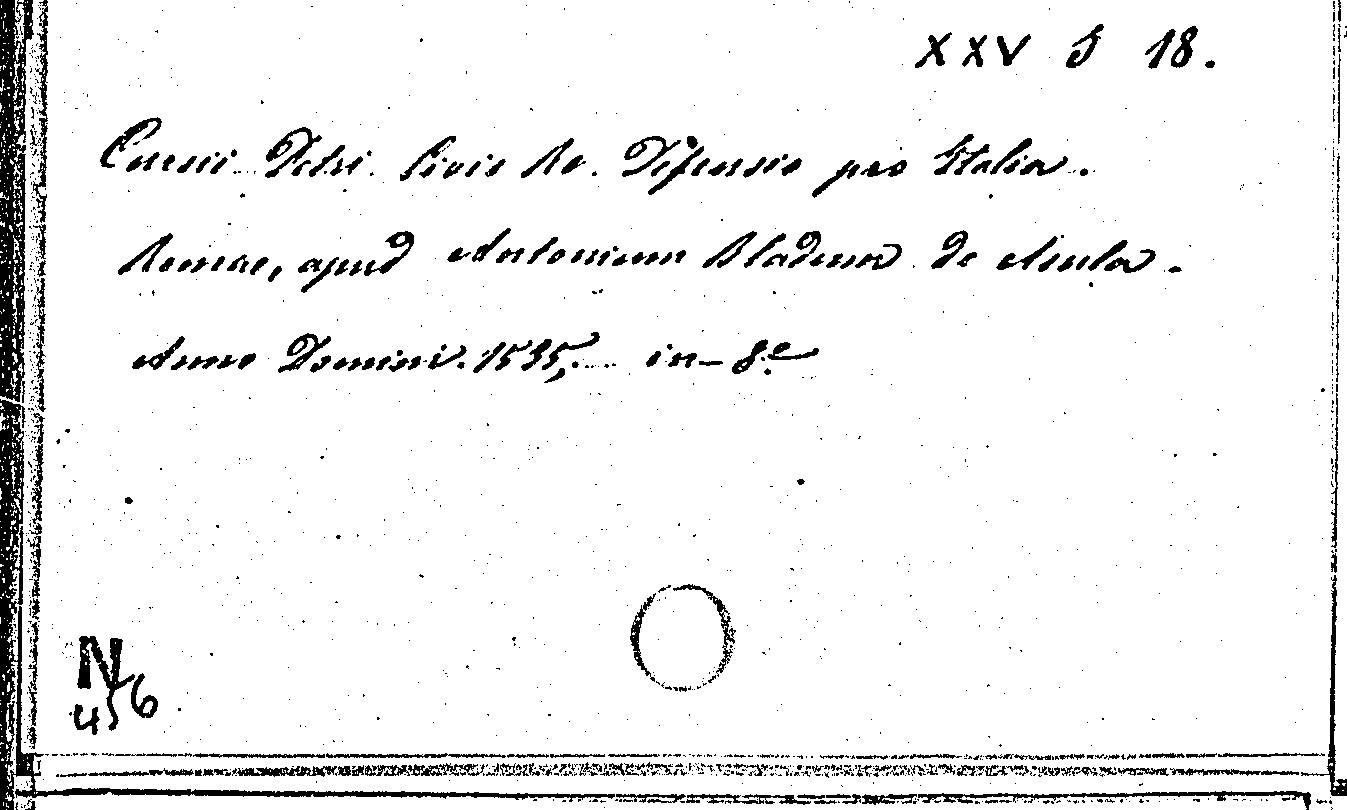 XXV J 18.
Cursii Petri. Civis Ro. Defensio pro Italia.
Romae, apud Antonium Bladum de Asula.
Anno Domini. 1535,. in-8.º
N
456